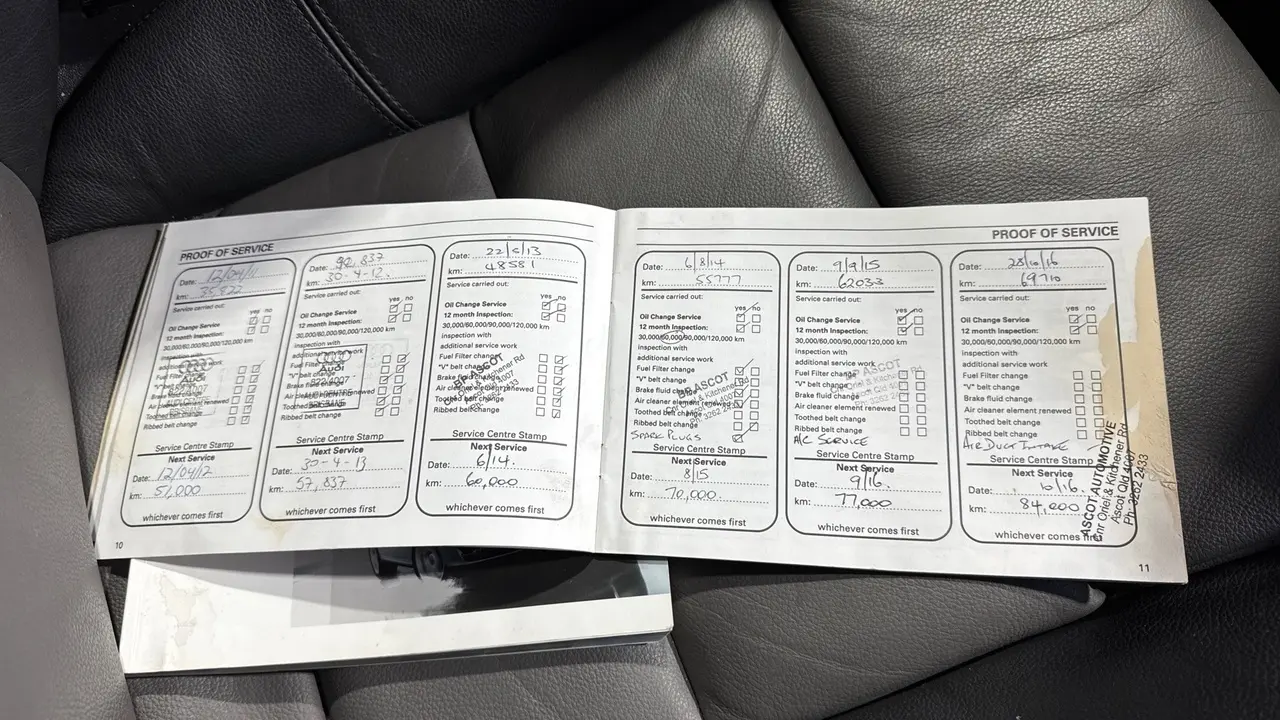 PROOF OF SERVICE
Date: 12/04/11
km: 35822
Service carried out:
yes no
Oil Change Service
12 month Inspection:
30,000/60,000/90,000/120,000 km
inspection with
additional service work
Fuel Filter change
"V" belt change
Brake fluid change
Air cleaner element renewed
Toothed belt change
Ribbed belt change
Audi
Service Centre Stamp
Next Service
Date: 12/04/12
km: 51,000
whichever comes first
Date: 42,837
km: 30-4-12.
Service carried out:
yes no
Oil Change Service
12 month Inspection:
30,000/60,000/90,000/120,000 km
inspection with
additional service work
Fuel Filter change
"V" belt change
Brake fluid change
Air cleaner element renewed
Toothed belt change
Ribbed belt change
Audi
AUDI CENTRE
BRISBANE
Service Centre Stamp
Next Service
Date: 30-4-13
km: 57,837
whichever comes first
Date: 22/5/13
km: 48581
Service carried out:
yes no
Oil Change Service
12 month Inspection:
30,000/60,000/90,000/120,000 km
inspection with
additional service work
Fuel Filter change
"V" belt change
Brake fluid change
Air cleaner element renewed
Toothed belt change
Ribbed belt change
BP ASCOT
Cnr Oriel & Kitchener Rd
Ascot Qld 4007
Ph: 3262 2433
Service Centre Stamp
Next Service
Date: 6/14.
km: 60,000
whichever comes first
10
PROOF OF SERVICE
Date: 6/8/14
km: 55777
Service carried out:
yes no
Oil Change Service
12 month Inspection:
30,000/60,000/90,000/120,000 km
inspection with
additional service work
Fuel Filter change
"V" belt change
Brake fluid change
Air cleaner element renewed
Toothed belt change
Ribbed belt change
SPARK PLUGS
BP ASCOT
Cnr Oriel & Kitchener Rd
Ascot Qld 4007
Ph: 3262 2433
Service Centre Stamp
Next Service
Date: 8/15
km: 70,000.
whichever comes first
Date: 9/9/15
km: 62033
Service carried out:
yes no
Oil Change Service
12 month Inspection:
30,000/60,000/90,000/120,000 km
inspection with
additional service work
Fuel Filter change
"V" belt change
Brake fluid change
Air cleaner element renewed
Toothed belt change
Ribbed belt change
A/C SERVICE
BP ASCOT
Cnr Oriel & Kitchener Rd
Ascot Qld 4007
Ph: 3262 2433
Service Centre Stamp
Next Service
Date: 9/16.
km: 77,000
whichever comes first
Date: 28/10/16
km: 69710
Service carried out:
yes no
Oil Change Service
12 month Inspection:
30,000/60,000/90,000/120,000 km
inspection with
additional service work
Fuel Filter change
"V" belt change
Brake fluid change
Air cleaner element renewed
Toothed belt change
Ribbed belt change
AIR DUCT INTAKE
Service Centre Stamp
Next Service
Date: 10/16.
km: 84,000
whichever comes first
ASCOT AUTOMOTIVE
Cnr Oriel & Kitchener Rd
Ascot Qld 4007
Ph: 3262 2433
11